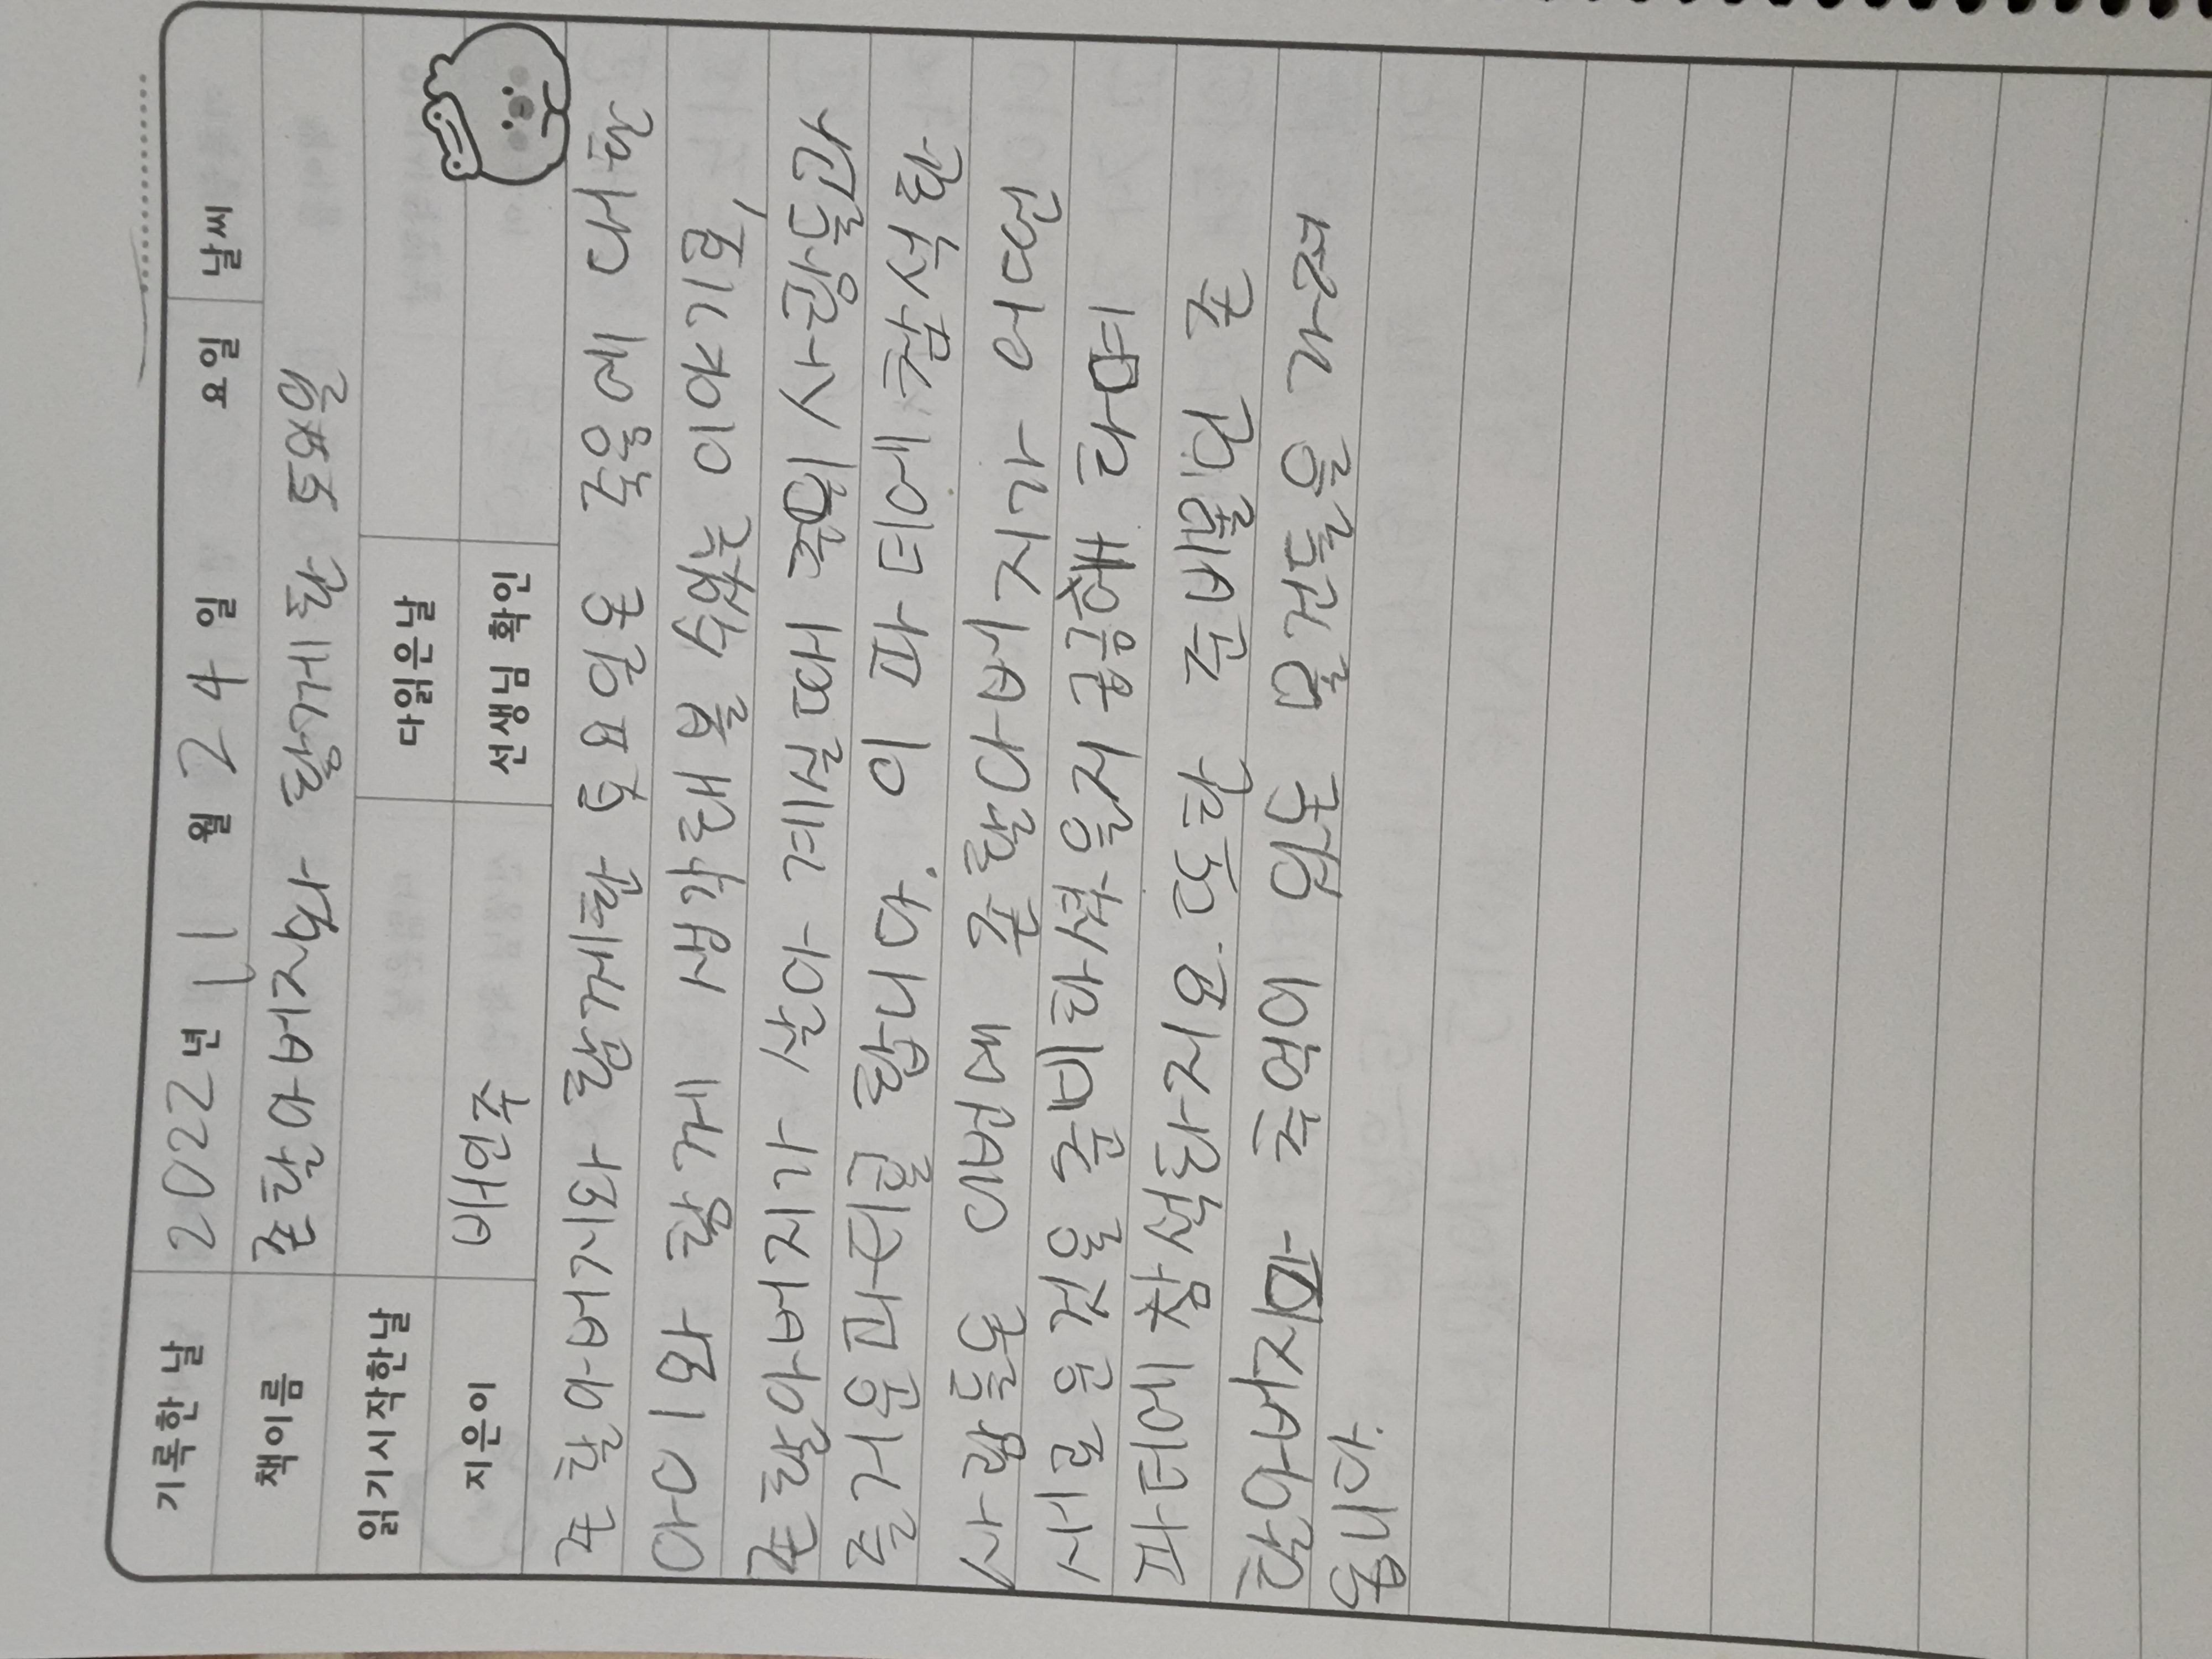 기록한 날 2022년 11월 24일 요일 날씨
책이름 존할아버지와 함께한 토요일
읽기시작한날 다읽은날
지은이 배인주 선생님 확인
존 할아버지와 함께한 토요일은 죽음에 대한
아이와 함께 생각해 볼 수있는 이야기로,
존할아버지가 살아 계실때 주위 사람들과
즐거운파티를 합니다. 이 파티에 참석한
사람들은 이번에 존할아버지가 어떤
새로운것을 준비하셨을지 궁금해 하며
파티에 참석하지요. 또한 준비물인 존
할아버지와 추억이 있는 물건들을 가져
옵니다.